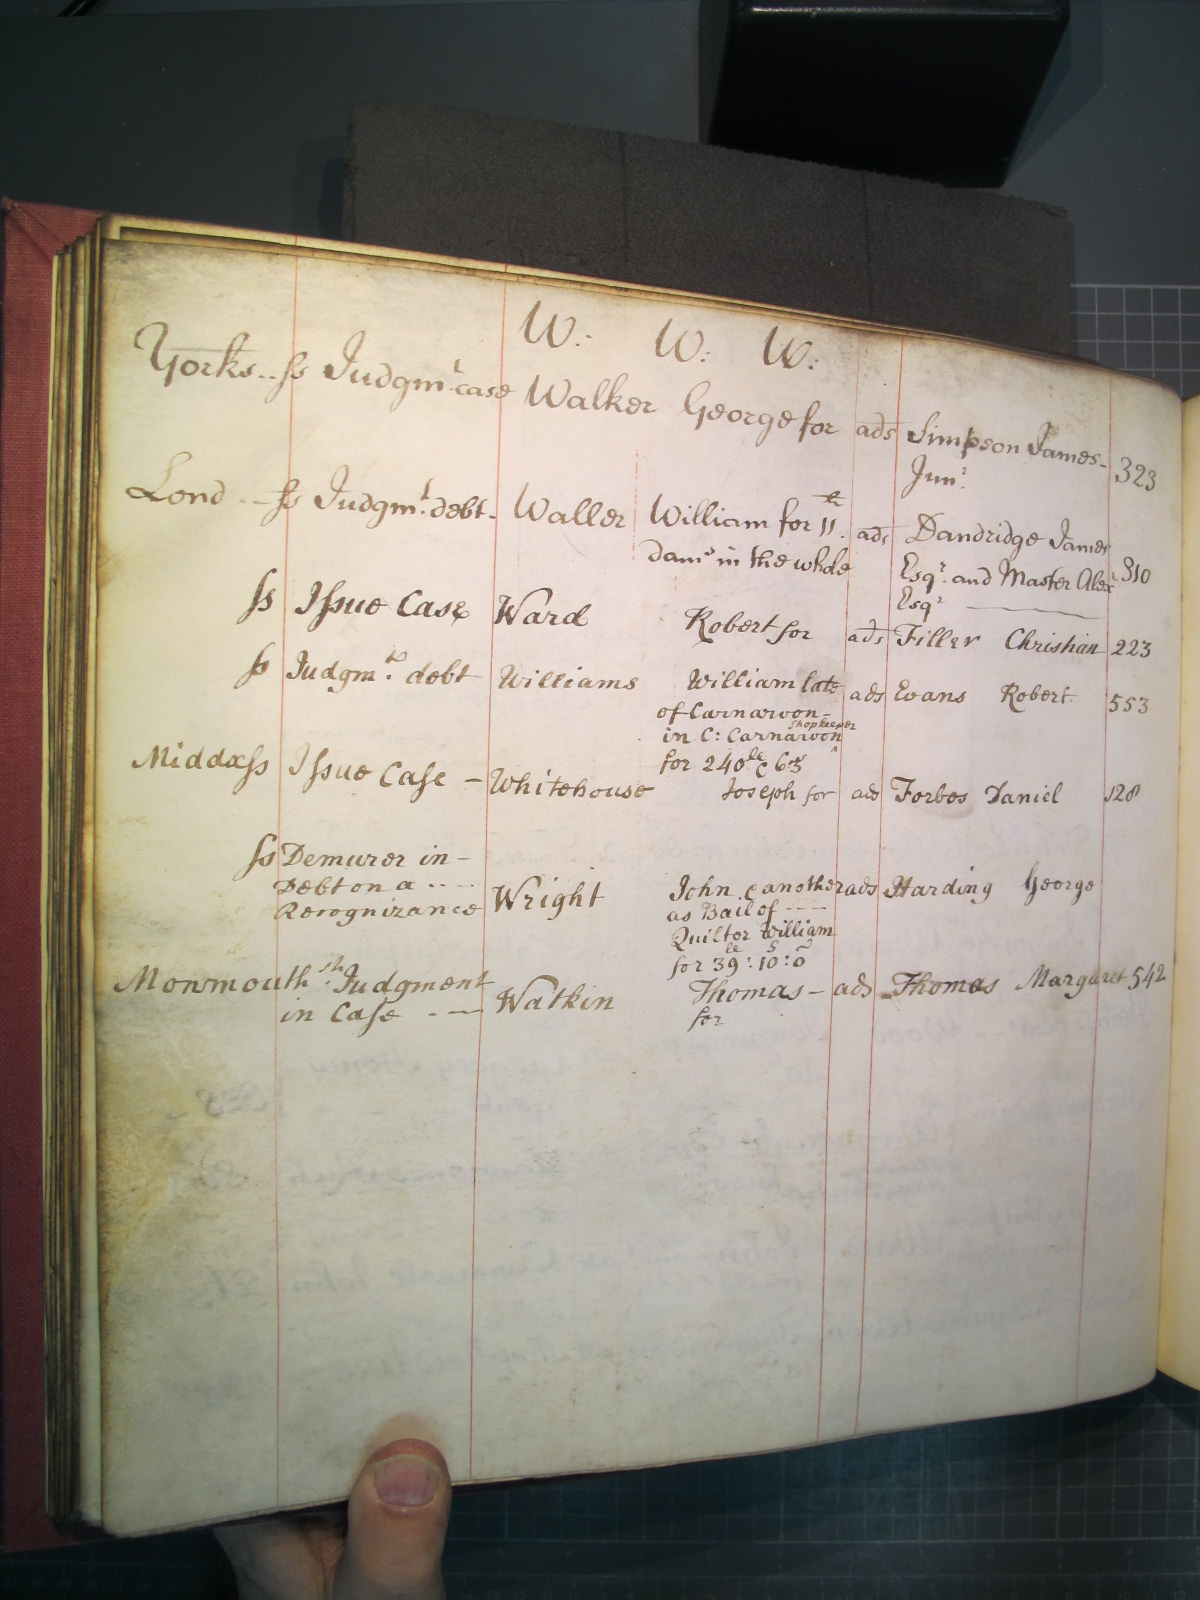 W: W: W:
Yorks.. ss Judgmt. case Walker George for ads Simpson James- 323
Junr.
Lond ... ss Judgmt. debt. Waller William for 11. ads Dandridge James
dams in the whole Esqr. and Master Alexr 310
Esqr
ss Issue Case Ward Robert for ads Filler Christian 223
ss Judgmt. debt Williams William late ads Evans Robert 553
of Carnarvon-
shopkeeper
in C: Carnarvon
for 240le & 63s
Middx ss Issue Case - Whitehouse Joseph for ads Forbes Daniel 128
ss Demurer in -
Debt on a .. -- Wright John & another ads Harding George
Recognizance as Bail of ----
Quilter William
for 39le: 10s: 0d
Monmouth ss: Judgment Watkin Thomas - ads Thomas Margaret 542
in Case - -- for